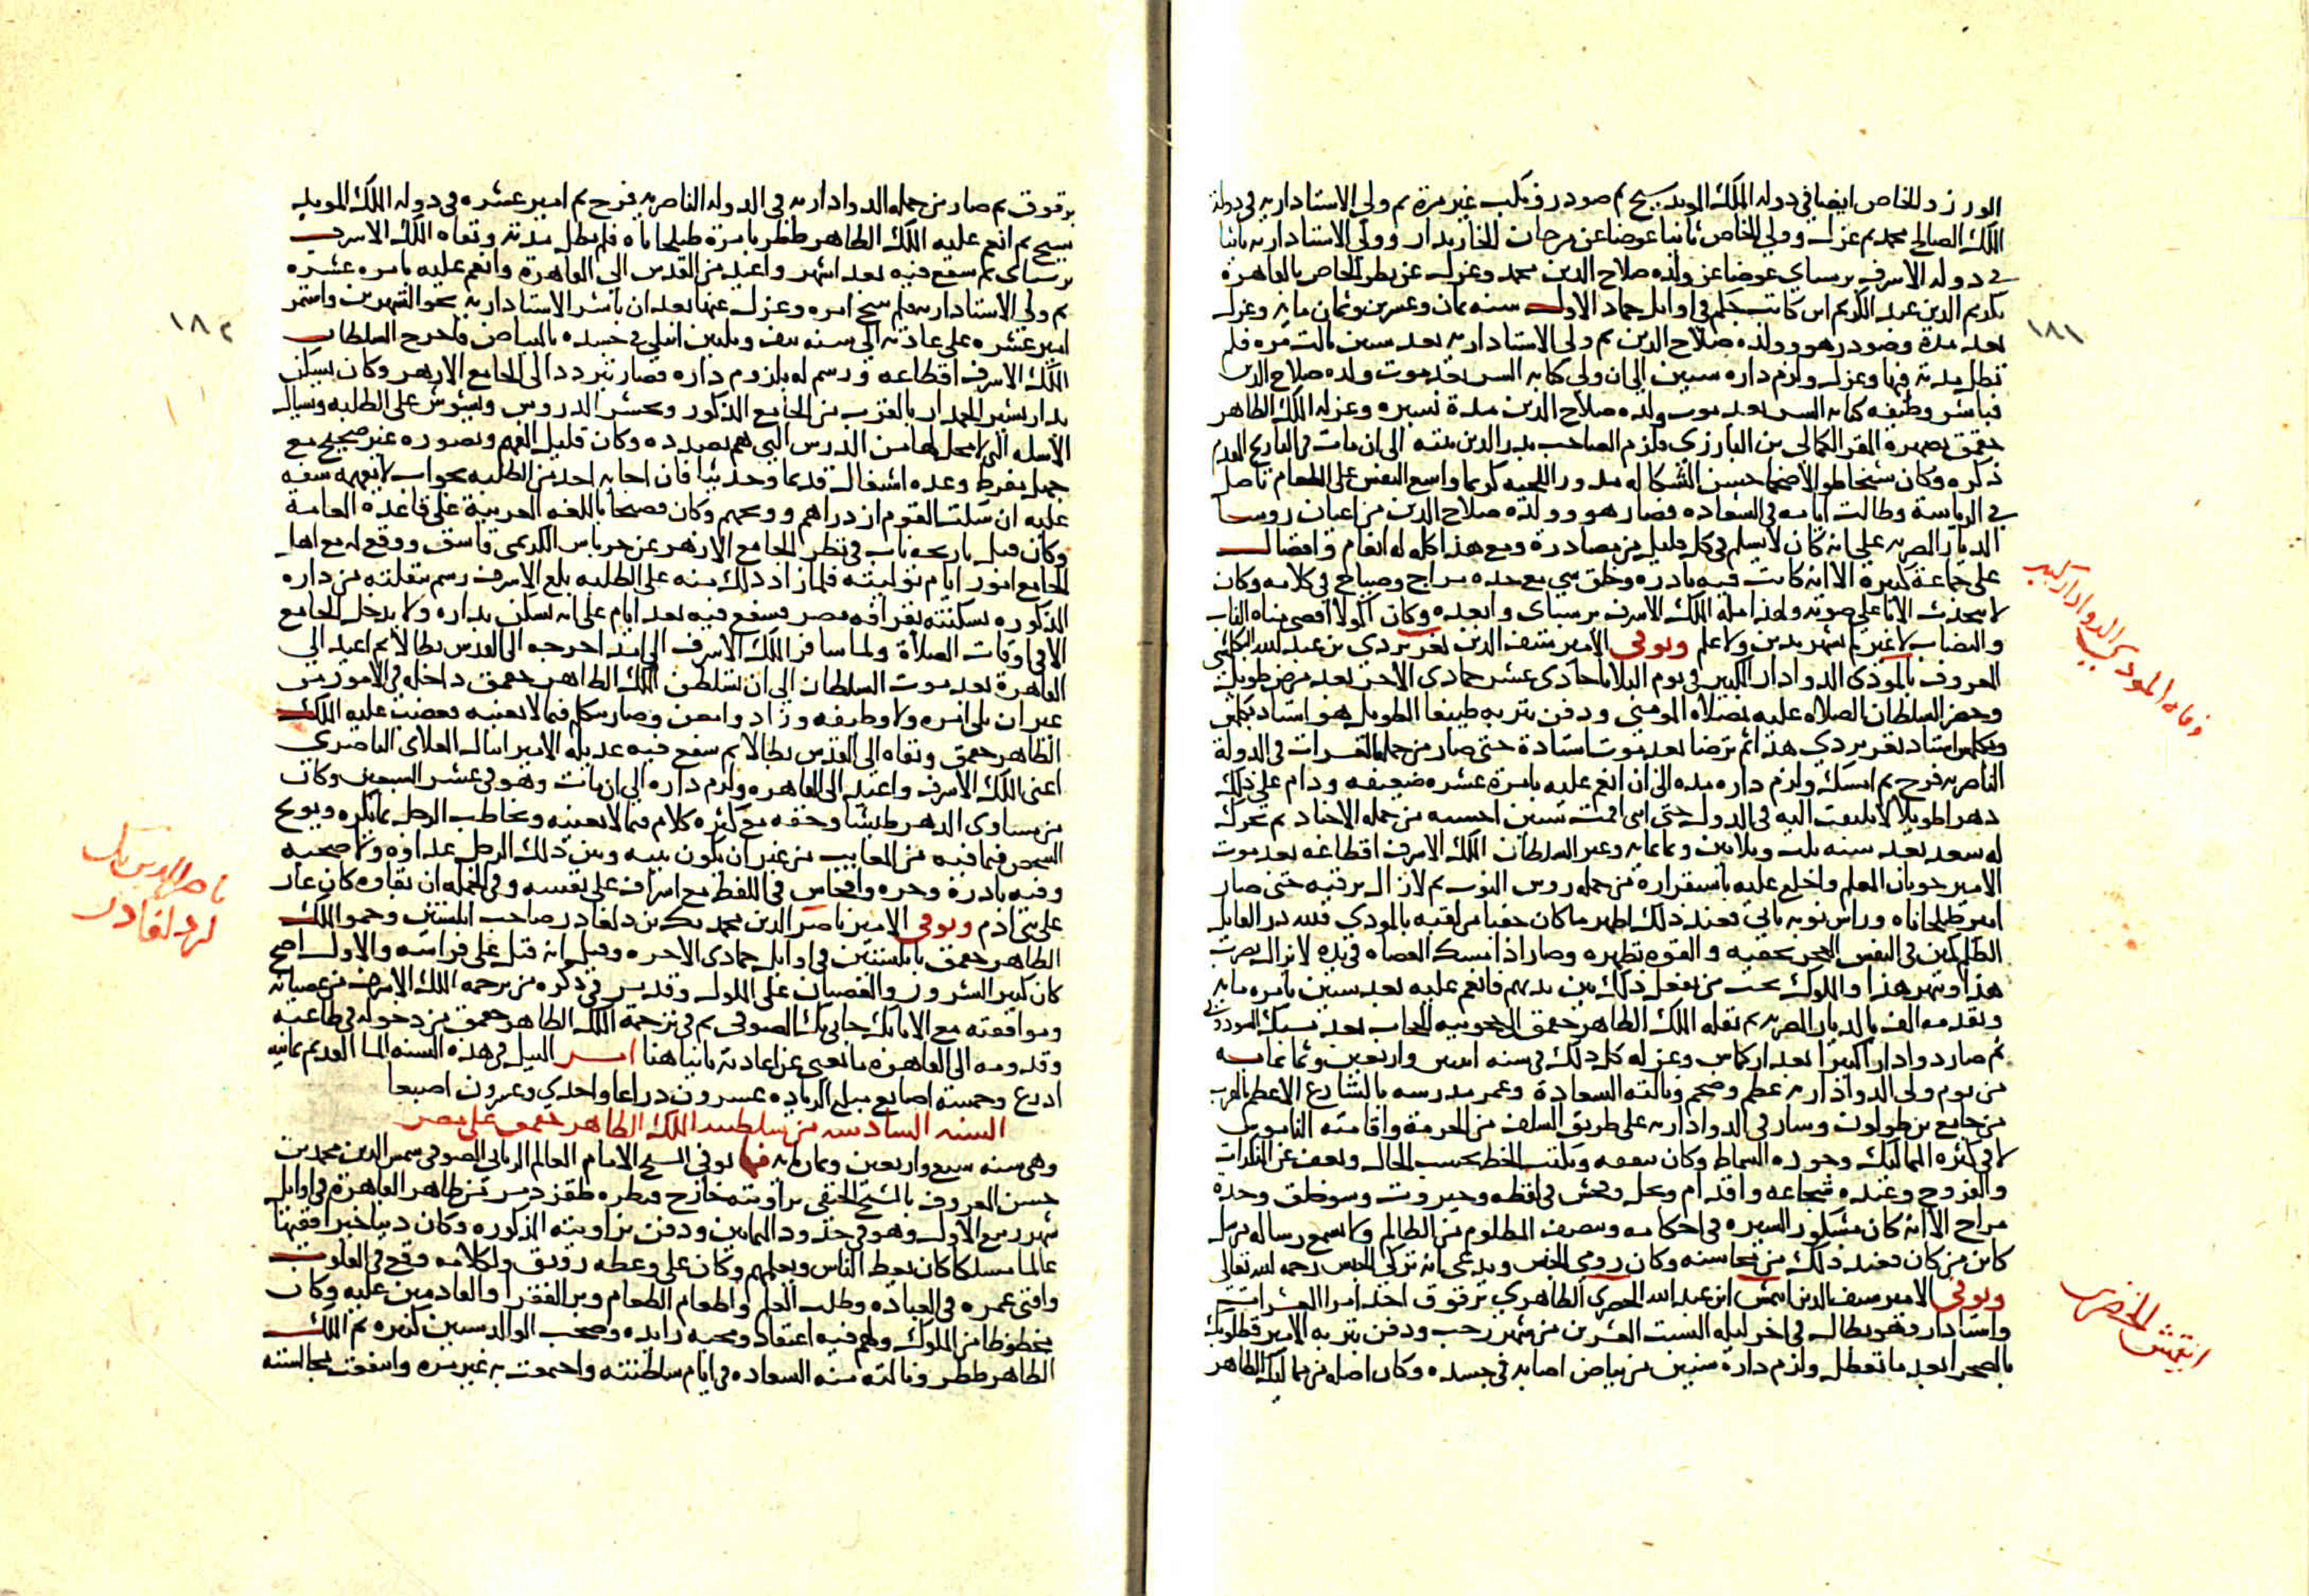 الوزر والخاص ايضا في دولة الملك المويد شيخ ثم صودر ونكب غير مرة ثم ولي الاستادارية في دولة
الملك الصالح محمد ثم عزل وولي الخاص ثانيا عوضا عن مرجان الخازندار وولي الاستادارية ثانيا
في دولة الاشرف برسباي عوضا عن ولده صلاح الدين محمد وعزل عن نظر الخاص بالقاهرة
بكريم الدين عبد الكريم ابن كاتب جكم في اوايل جماد الاول سنه ثمان وعشرين وثمان مايه وعزل
بعد مدة وصودر هو وولده صلاح الدين ثم ولي الاستادارية بعد سنين ثالث مره فلم
تطل مدته فيها وعزل ولزم داره سنين الي ان ولي كتابه السر بعد موت ولده صلاح الدين
فباشر وظيفه كتابه السر بعد موت ولده صلاح الدين مدة يسيره وعزله الملك الظاهر
جقمق بصهره المقر الكمالي بن البارزي ولزم الصاحب بدر الدين بيته الي ان مات في التاريخ المقدم
ذكره وكان شيخا طوالا ضخما حسن الشكاله مدور اللحيه كريما واسع النفس علي الطعام تاصل
في الرياسة وطالت ايامه في السعاده وصار هو وولده صلاح الدين من اعيان روسا
الديار المصريه علي انه كان لا يسلم في كل قليل من مصادرة ومع هذا كله له انعام وافضال
علي جماعة كبيره الا انه كانت فيه بادره وخلق سي مع حده مزاج وصياح في كلامه وكان
لا يتحدث الا باعلي صوته ولهذا مله الملك الاشرف برسباي وابعده وكان اكولا اقصي مناه الناب
والنصاب لا غير لم يشهر بدين ولا علم وتوفي الامير سيف الدين تغري بردي بن عبد الله البكلمشي
المعروف بالموذي الدوادار الكبير في يوم الثلاثا حادي عشر جمادي الاخر بعد مرض طويل
وحضر السلطان الصلاه عليه بمصلاه المومني ودفن بتربه طيبغا الطويل هو استاد بكلمش
وبكلمش استاد تغري بردي هذا ثم ترضا بعد موت استادة حتي صار من جمله العشرات في الدولة
الناصريه فرج ثم امسك ولزم داره مده الي ان انعم عليه بامرة عشره ضعيفه ودام علي ذلك
دهرا طويلا لا يلتفت اليه في الدول حتي اني اقمت سنين احسبه من جمله الاجناد ثم تحرك
له سعد بعد سنه ثلث وثلاثين وثمانمايه وغير السلطان الملك الاشرف اقطاعه بعد موت
الامير جوبان المعلم واخلع عليه باستقراره من جمله روس النوب ثم لازال يرقيه حتي صار
امير طبلخاناه وراس نوبه ثاني فعند ذلك اظهر ما كان خفيا من لقبه بالموذي فلله در القايل
الظلم كمين في النفس العجز يخفيه والقوه تظهره وصار اذا امسك العصاه في يده لا يزال يضرب
هذا وينهر هذا والملوك تحب من يفعل ذلك بين يديهم فانعم عليه بعد سنين بامره مايه
وتقدمه الف بالديار المصريه ثم نقله الملك الظاهر جقمق الي حجوبيه الحجاب بعد يشبك السودوني
ثم صار دوادارا كبيرا بعد اركماس وعزله كل ذلك في سنه اثنين واربعين وثمانمايه
من يوم ولي الدوادارية عظم وضخم ونالته السعادة وعمر مدرسه بالشارع الاعظم القرب
من جامع بن طولون وسار في الدوادارية علي طريق السلف من الحرمة واقامته الناموس
لا في كثره المماليك وجوده السماط وكان يتفقه ويكتب الخط بحسب الحال ويعف عن المنكرات
والفروج وعنده شجاعه واقدام وبخل وفحش في لفظه وجبروت وسو خلق وحده
مزاج الا انه كان مشكور السيره في احكامه وينصف المظلوم من الظالم ولا يسمع رساله مرسل
كاين من كان فعند ذلك من محاسنه وكان رومي الجنس ويدعي انه تركي الجنس رحمه الله تعالي
وتوفي الامير سيف الدين ايتمش ابن عبد الله الخضري الظاهري برقوق احد امرا العشرات
واستادار وهو بطال في اخر ليله السبت العشرين من شهر رجب ودفن بتربه الامير قطلوبك
بالصحرا بعد ما تعطل ولزم دارة سنين من بياض اصابه في جسده وكان اصله من مماليك الظاهر
وفاه المودي الدوادار كبير
ايتمش الخضري
١٨١
برقوق ثم صار من جمله الدوادارية في الدوله الناصريه فرج ثم امير عشره في دوله الملك المويد
شيخ ثم انعم عليه الملك الظاهر ططر بامرة طبلخاناه فلم تطل مدته ونفاه الملك الاشرف
برسباي ثم شفع فيه بعد اشهر واعيد من القدس الي القاهرة وانعم عليه بامره عشره
ثم ولي الاستادارية فلم ينتج امره وعزل عنها بعد ان باشر الاستادارية نحو الشهرين واستمر
امير عشره علي عادته الي سنه نيف وثلثين ابتلي في جسده بالبياض فاخرج السلطان
الملك الاشرف اقطاعه ورسم له بلزوم داره فصار يتردد الي الجامع الازهر وكان يسكن
بدار بشير الجمدار بالقرب من الجامع المذكور ويحضر الدروس ويشوش علي الطلبه ويسال
الاسله التي لا محل لها من الدرس التي هم بصدده وكان قليل الفهم وتصوره غير صحيح مع
جهل مفرط وعده اشغال قديما وحديثا فان اجابه احد من الطلبه بجواب لا يفهمه سفه
عليه ان سكت القوم ازدراهم ووبخهم وكان فصيحا باللغه العربية علي قاعده العامة
وكان قبل تاريخه ناب في نظر الجامع الازهر عن جرباس الكريمي قاشق ووقع له مع اهل
الجامع امور ايام توليته فلما زاد ذلك منه علي الطلبه بلغ الاشرف رسم بنقلته من داره
المذكوره بسكنته بقرافه مصر فشفع فيه بعد ايام علي انه يسكن بداره ولا يدخل الجامع
الا في اوقات الصلاة ولما سافر الملك الاشرف الي امد اخرجه الي القدس بطالا ثم اعيد الي
القاهرة بعد موت السلطان الي ان تسلطن الملك الظاهر جقمق داخله في الامور من
غير ان يلي امره ولا وظيفه وزاد وامعن وصار يتكلم فيما لا يعنيه فغضب عليه الملك
الظاهر جقمق ونفاه الي القدس بطالا ثم شفع فيه عديله الامير اينال العلاي الناصري
اعني الملك الاشرف واعيد الي القاهره ولزم داره الي ان مات وهو في عشر السبعين وكان
من مساوي الدهر طيشا وخفه مع كثره كلام فيما لا يعنيه ويخاطب الرجل بما يكره ويوبخ
الشخص فيما فيه من المعايب من غير ان يكون بينه وبين ذلك الرجل عداوه ولا صحبه
وفيه بادرة وحده وافحاش في اللفظ مع اسراف علي نفسه وفي الجمله ان بقاوه كان عار
علي بني ادم وتوفي الامير ناصر الدين محمد بك بن دلغادر صاحب ابلستين وحمو الملك
الظاهر جقمق بابلستين في اوايل جمادي الاخره وقيل انه قتل علي فراشه والاول اصح
كان كثير الشرور والعصيان علي الملوك وقد مر في ذكره من ترجمه الملك الاشرف من عصيانه
وموافقته مع الاتابك جاني بك الصوفي ثم في ترجمة الملك الظاهر جقمق من دخوله في طاعته
وقدومه الي القاهرة ما يغني عن اعادته ثانيا هنا امر النيل في هذه السنه الما القديم ثمانيه
اذرع وخمسة اصابع مبلغ الزياده عشرون ذراعا واحدي وعشرون اصبعا
السنه السادسه من سلطنه الملك الظاهر جقمق علي مصر
وهي سنه سبع واربعين وثمان مايه فيها توفي الشيخ الامام العالم الرباني الصوفي شمس الدين محمد بن
حسن المعروف بالشيخ الحنفي بزاويته خارج قنطره طقز دمر من ظاهر القاهرة في اوايل
شهر ربيع الاول وهو في حدود الثمانين ودفن بزاويته المذكوره وكان دينا خيرا فقيها
عالما مسلكا كان يعظ الناس ويعلمهم وكان علي وعظه رونق ولكلامه وقع في القلوب
وافني عمره في العباده وطلب العلم واطعام الطعام وبر الفقرا والقادمين عليه وكان
محظوظا من الملوك ولهم فيه اعتقاد ومحبه زايده وصحب الوالد سنين كثيره ثم الملك
الظاهر ططر ونالته منه السعاده في ايام سلطنته واجتمعت به غير مره وانتفعت بمجالسته
ناصر الدين بك
بن دلغادر
١٨٢